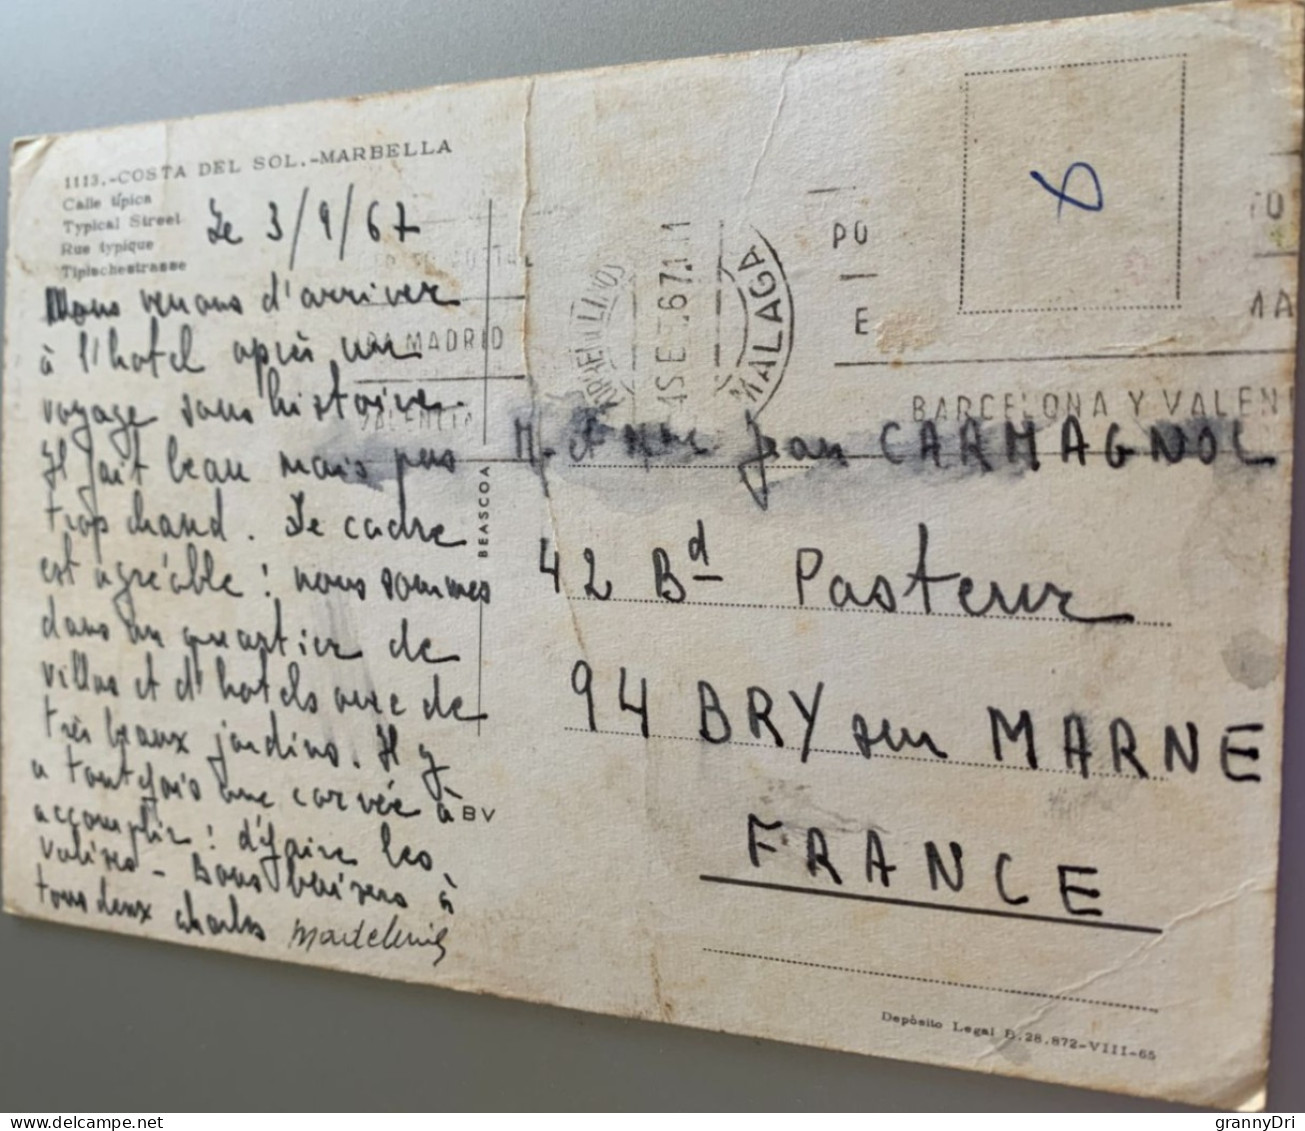 1113.-COSTA DEL SOL.-MARBELLA
Calle típica
Typical Street
Rue typique
Tipischestrasse
Le 3/9/67
Nous venons d'arriver
à l'hotel après un
voyage sans histoire.
Il fait beau mais pas
trop chaud. Le cadre
est agréable : nous sommes
dans un quartier de
villas et d'hotels avec de
très beaux jardins. Il y
a toutefois une corvée à
accomplir : défaire les
valises - Bons baisers à
tous deux Charles Madeleine
MADRID
VALENCIA
BEASCOA
BV
4 SE 67
MALAGA
PO
E
BARCELONA Y VALEN
M. et Mme Jean CARMAGNOL
42 Bd Pasteur
94 BRY sur MARNE
FRANCE
Depósito Legal B. 28.872-VIII-65
grannyDri